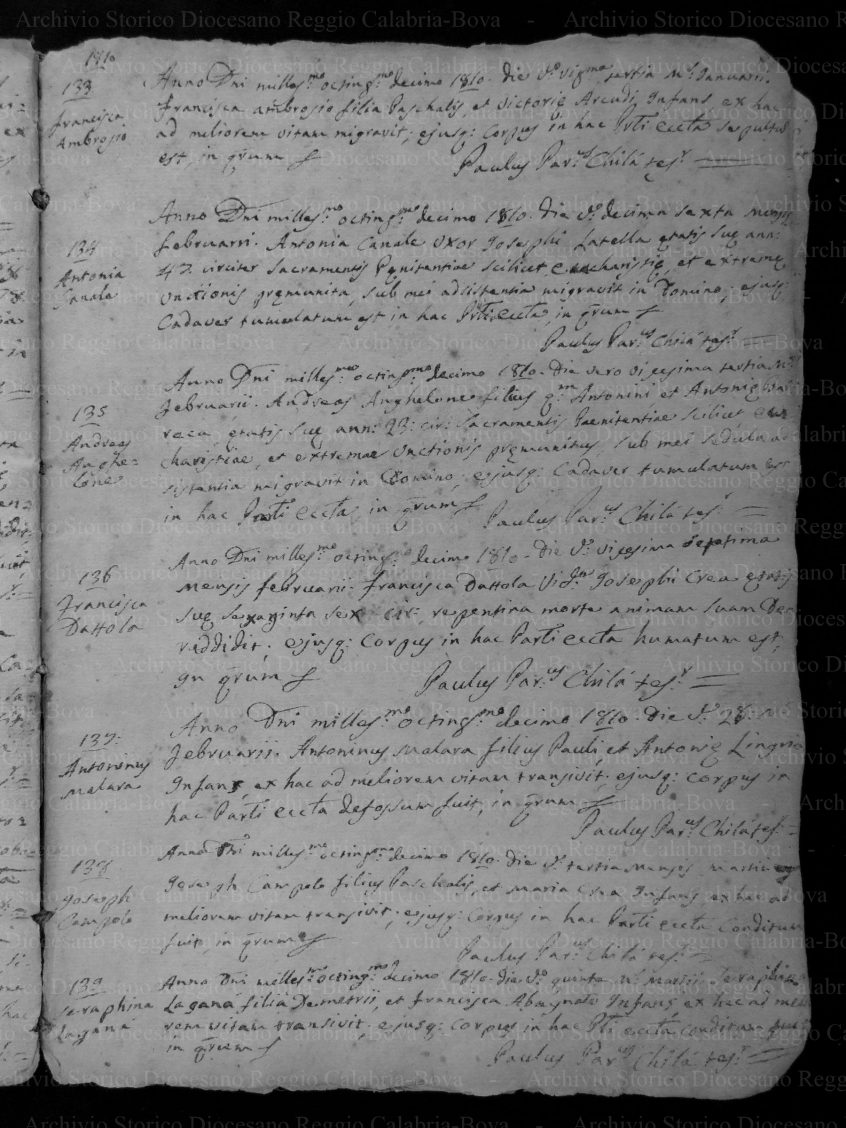 Archivio Storico Diocesano Reggio Calabria-Bova - Archivio Storico Diocesano Reggio Calabria-Bova
1810
133
Francisca
Ambrosio
Anno Dni milles:mo octing:mo decimo 1810. die vo vig:ma tertia M:s Januarii.
Francisca ambrosio filia Paschalis, et Victorię Arcudi Infans, ex hac
ad meliorem vitam migravit; ejusq: Corpus in hac Prti Eccta sepultum
est, in qrum f
Paulus Par:us Chilá tes:r
134
Antonia
Canale
Anno Dni milles:mo octing:mo decimo 1810. die vo decima sexta Mensis
Februarii. Antonia Canale Uxor Josephi Latella ętatis suę ann:
47. circiter Sacramentis Pęnitentiae scilicet eucharistię, et extremę
Unctionis pręmunita, sub mei adsistentia migravit in Domino; ejusq:
Cadaver tumulatum est in hac Prti Eccta, in qrum f
Paulus Par:us Chilá tes:r
135
Andreas
Anghe=
lone
Anno Dni milles:mo octing:mo decimo 1810. die vero vicesima tertia M:s
Februarii. Andreas Anghelone filius q:m Antonini et Antonię
ętatis suę ann: 23: cir: Sacramentis Paenitentiae scilicet eu
charistiae, et extremae Unctionis pręmunitus, sub mei sedula ad
sistentia migravit in Domino, ejusq: Cadaver tumulatum est
in hac Prti Eccta, in qrum f
Paulus Par:us Chilá tes:r
136
Francisca
Dattola
Anno Dni milles:mo octing:mo decimo 1810. die vo vicesima septima
Mensis Februarii. Francisca Dattola Josephi Crea ętatis
suę sexaginta sex cir: repentina morte animam suam Deo
reddidit. ejusq: Corpus in hac Parti Eccta humatum est,
In qrum f
Paulus Par:us Chilá tes:r
137.
Antoninus
Malara
Anno Dni milles:mo octing:mo decimo 1810 die vo 28
Februarii. Antoninus Malara filius Pauli, et Antonię
Infans, ex hac ad meliorem vitam transivit; ejusq: Corpus in
hac Parti Eccta defossum fuit, in qrum f
Paulus Par:us Chilá tes:
138
Joseph
Campolo
Anno Dni milles:mo octing:mo decimo 1810. die vo tertia Mensis Martii
Joseph Campolo filius Paschalis, et Maria Crea Infans ex hac ad
meliorem vitam transivit; ejusq: Corpus in hac Parti Eccta Conditum
fuit, in qrum f
Paulus Par:us Chilá tes:r
139
Seraphina
Laganá
Anno Dni milles:mo octing:mo decimo 1810. die vo quinta M: Martii Seraphina
Lagana filia Demetrii, et Francisca Infans ex hac ad melio
rem vitam transivit; ejusq: Corpus in hac Prti Eccta conditum fuit
in qrum f
Paulus Par:us Chilá tes:r
Archivio Storico Diocesano Reggio Calabria-Bova - Archivio Storico Diocesano Reggio